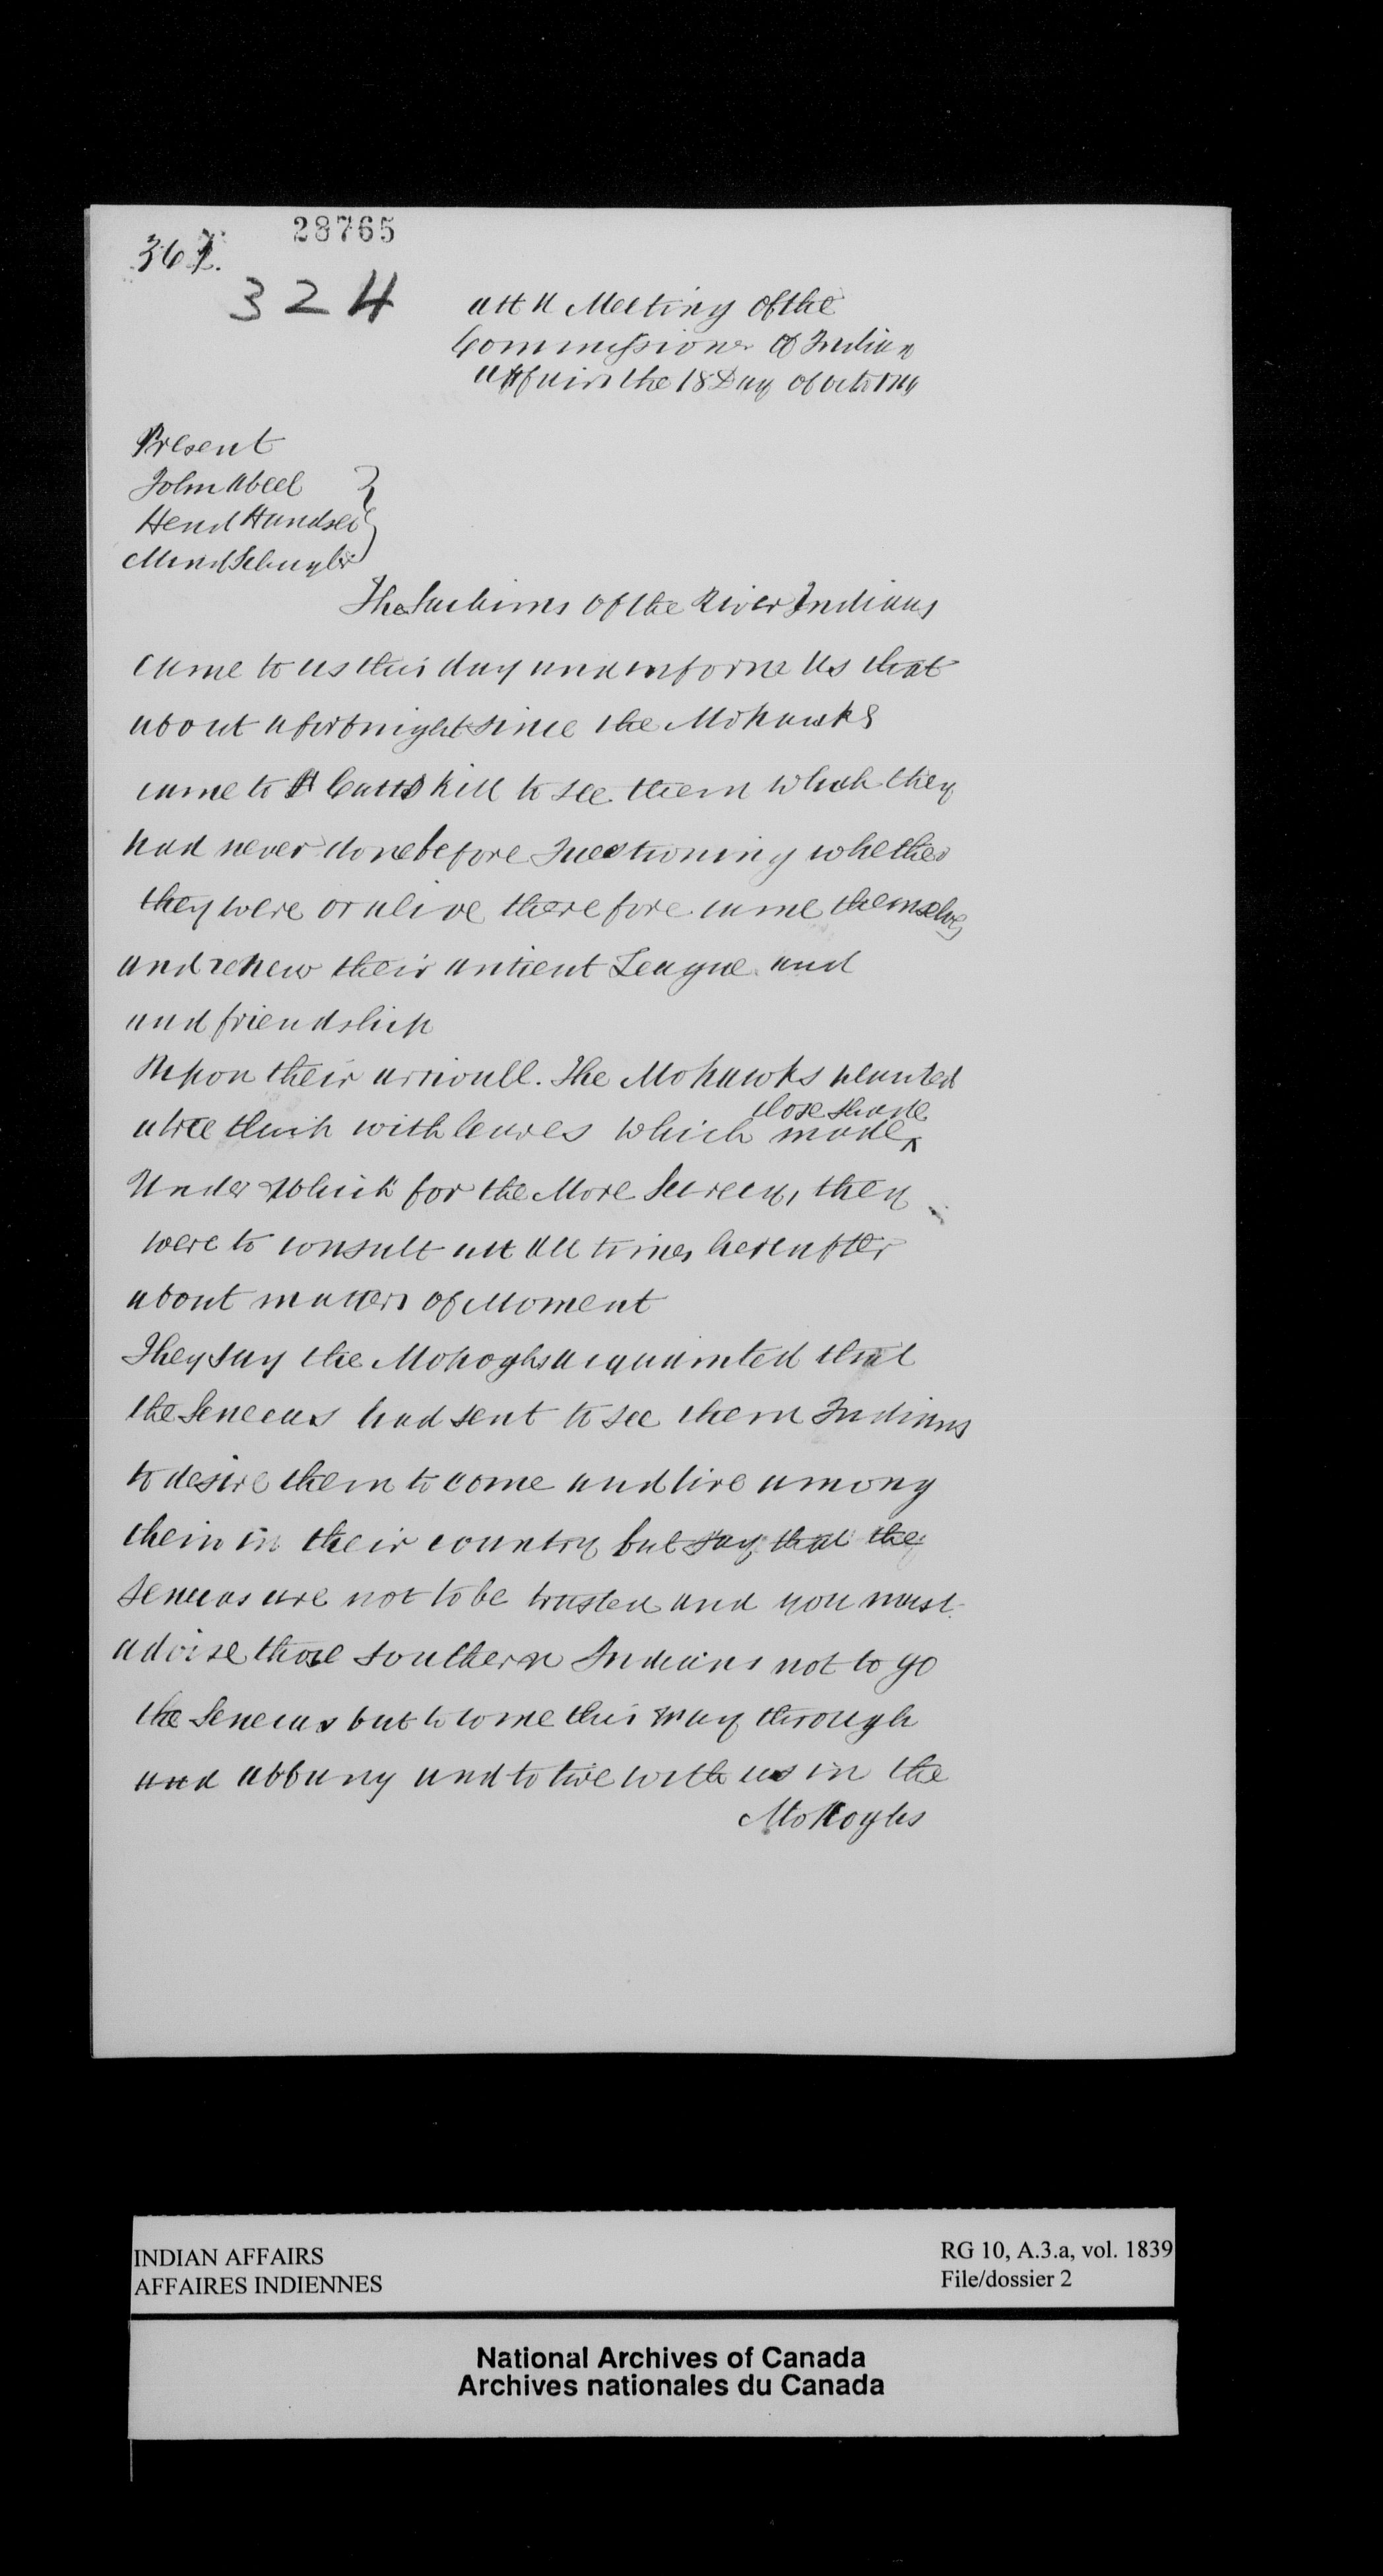 28765
367.
324
att A Meeting of the
Commissioner of Indian
Affairs the 18 Day of Octo
Present
John Abeel
Hend Handsen
Mynd Schuyler
The Sachims of the River Indians
came to us this day and inform Us that
about a fortnight since the Mohawks
came to Catts Kill to see them which they
had never done before Questioning whether
they were or alive therefore came themselves
and renew their antient League and
and friendship
Upon their arrivall. The Mohawks planted
a tree thick with leaves which made close shade
Under which for the More Secrecy, they
were to consult att All times hereafter
about matters of Moment
They say the Mohoghs acquainted that
the Senecas had sent to see them Indians
to desire them to come and live among
them in their country but say that the
Senecas are not to be trusted and you must
advise those Southern Indians not to go
the Senecas but to come this way through
and abbany and to live with us in the
Mohoghs
INDIAN AFFAIRS
AFFAIRES INDIENNES
RG 10, A.3.a, vol. 1839
File/dossier 2
National Archives of Canada
Archives nationales du Canada